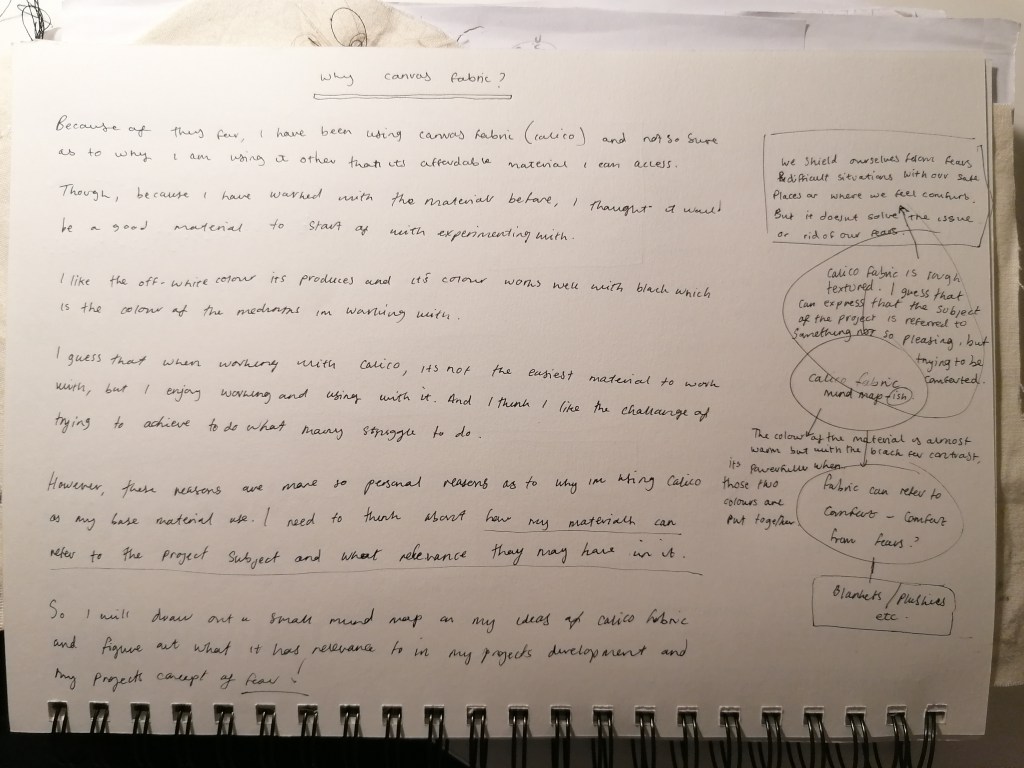 Why canvas fabric?
Because of thus far, I have been using canvas fabric (calico) and not so sure
as to why I am using it other that its affordable material I can access.
Though, because I have worked with the material before, I thought it would
be a good material to start of with experimenting with.
I like the off-white colour its produces and it's colour works well with black which
is the colour of the mediums im working with.
I guess that when working with calico, its not the easiest material to work
with, but I enjoy working and using with it. And I think I like the challenge of
trying to achieve to do what many struggle to do.
However, these reasons are more so personal reasons as to why im using calico
as my base material use. I need to think about how my materials can
refer to the project subject and what relevance they may have in it.
So I will draw out a small mind map on my ideas of calico fabric
and figure out what it has relevance to in my projects development and
my projects concept of fear!
We shield ourselves from fears
& difficult situations with our safe
places or where we feel comfort.
But it doesnt solve the issue
or rid of our fears.
Calico fabric is rough
textured. I guess that
can express that the subject
of the project is referred to
something not so pleasing, but
trying to be
comforted.
Calico fabric
mind map-ish.
The colour of the material is almost
warm but with the black for contrast,
its powerfull when
those two
colours are
put together.
fabric can refer to
comfort - comfort
from fears?
Blankets / plushies
etc.